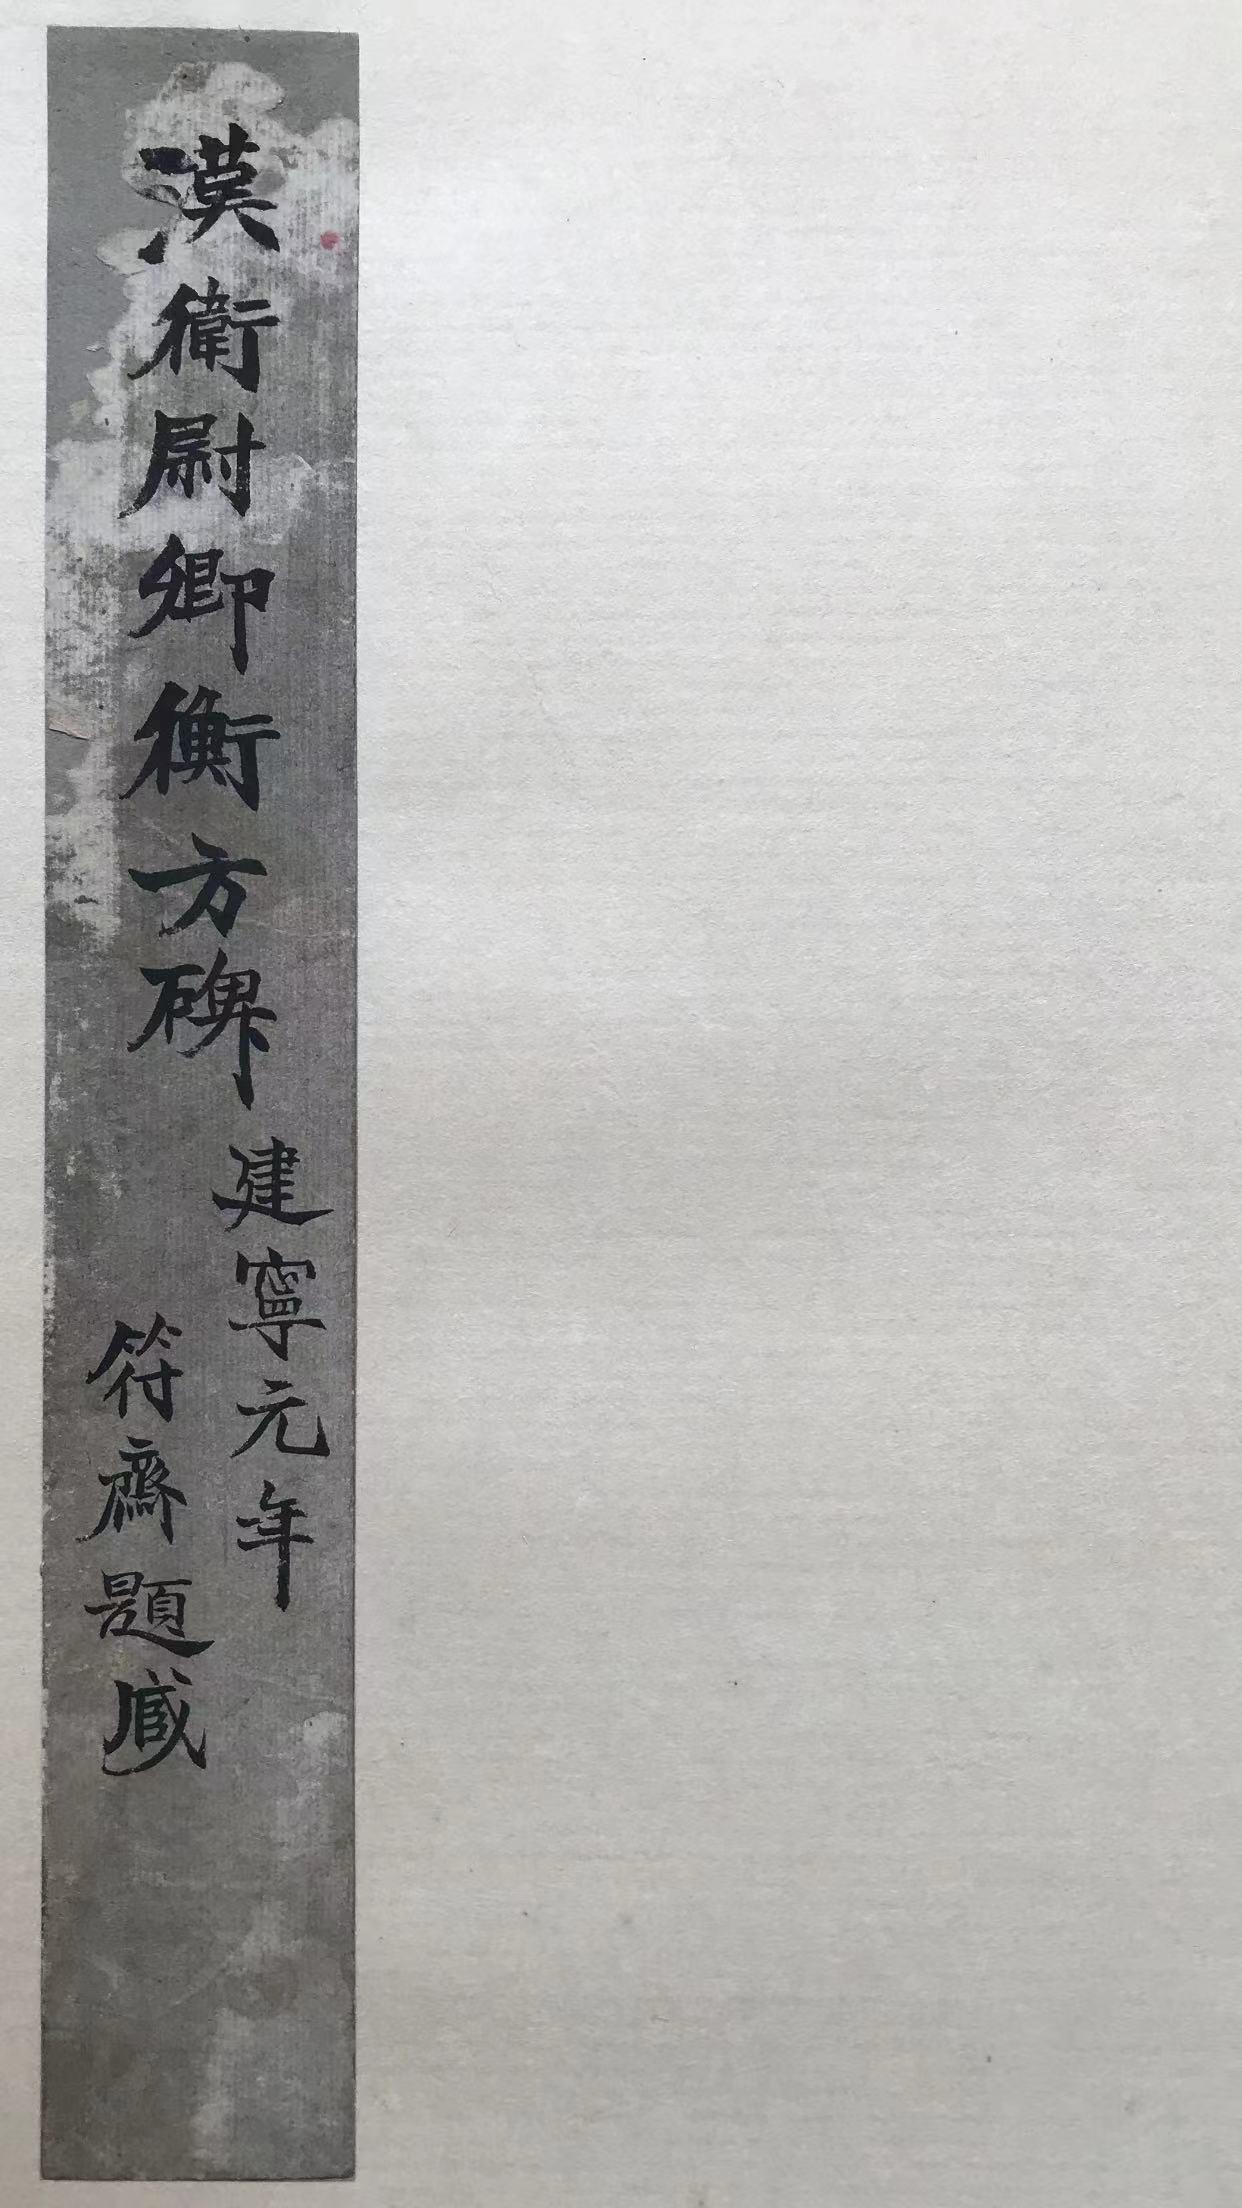 漢衛尉卿衡方碑
建寧元年
符齋題臧